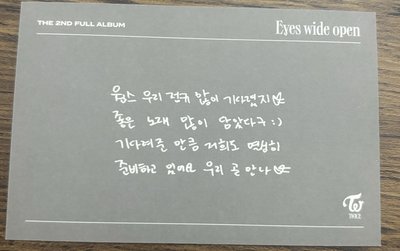 THE 2ND FULL ALBUM
Eyes wide open
원스 우리 정규 많이 기다렸지
좋은 노래 많이 담았다구 :)
기다려준 만큼 저희도 열심히
준비하고 있어요 우리 곧 만나
TWICE